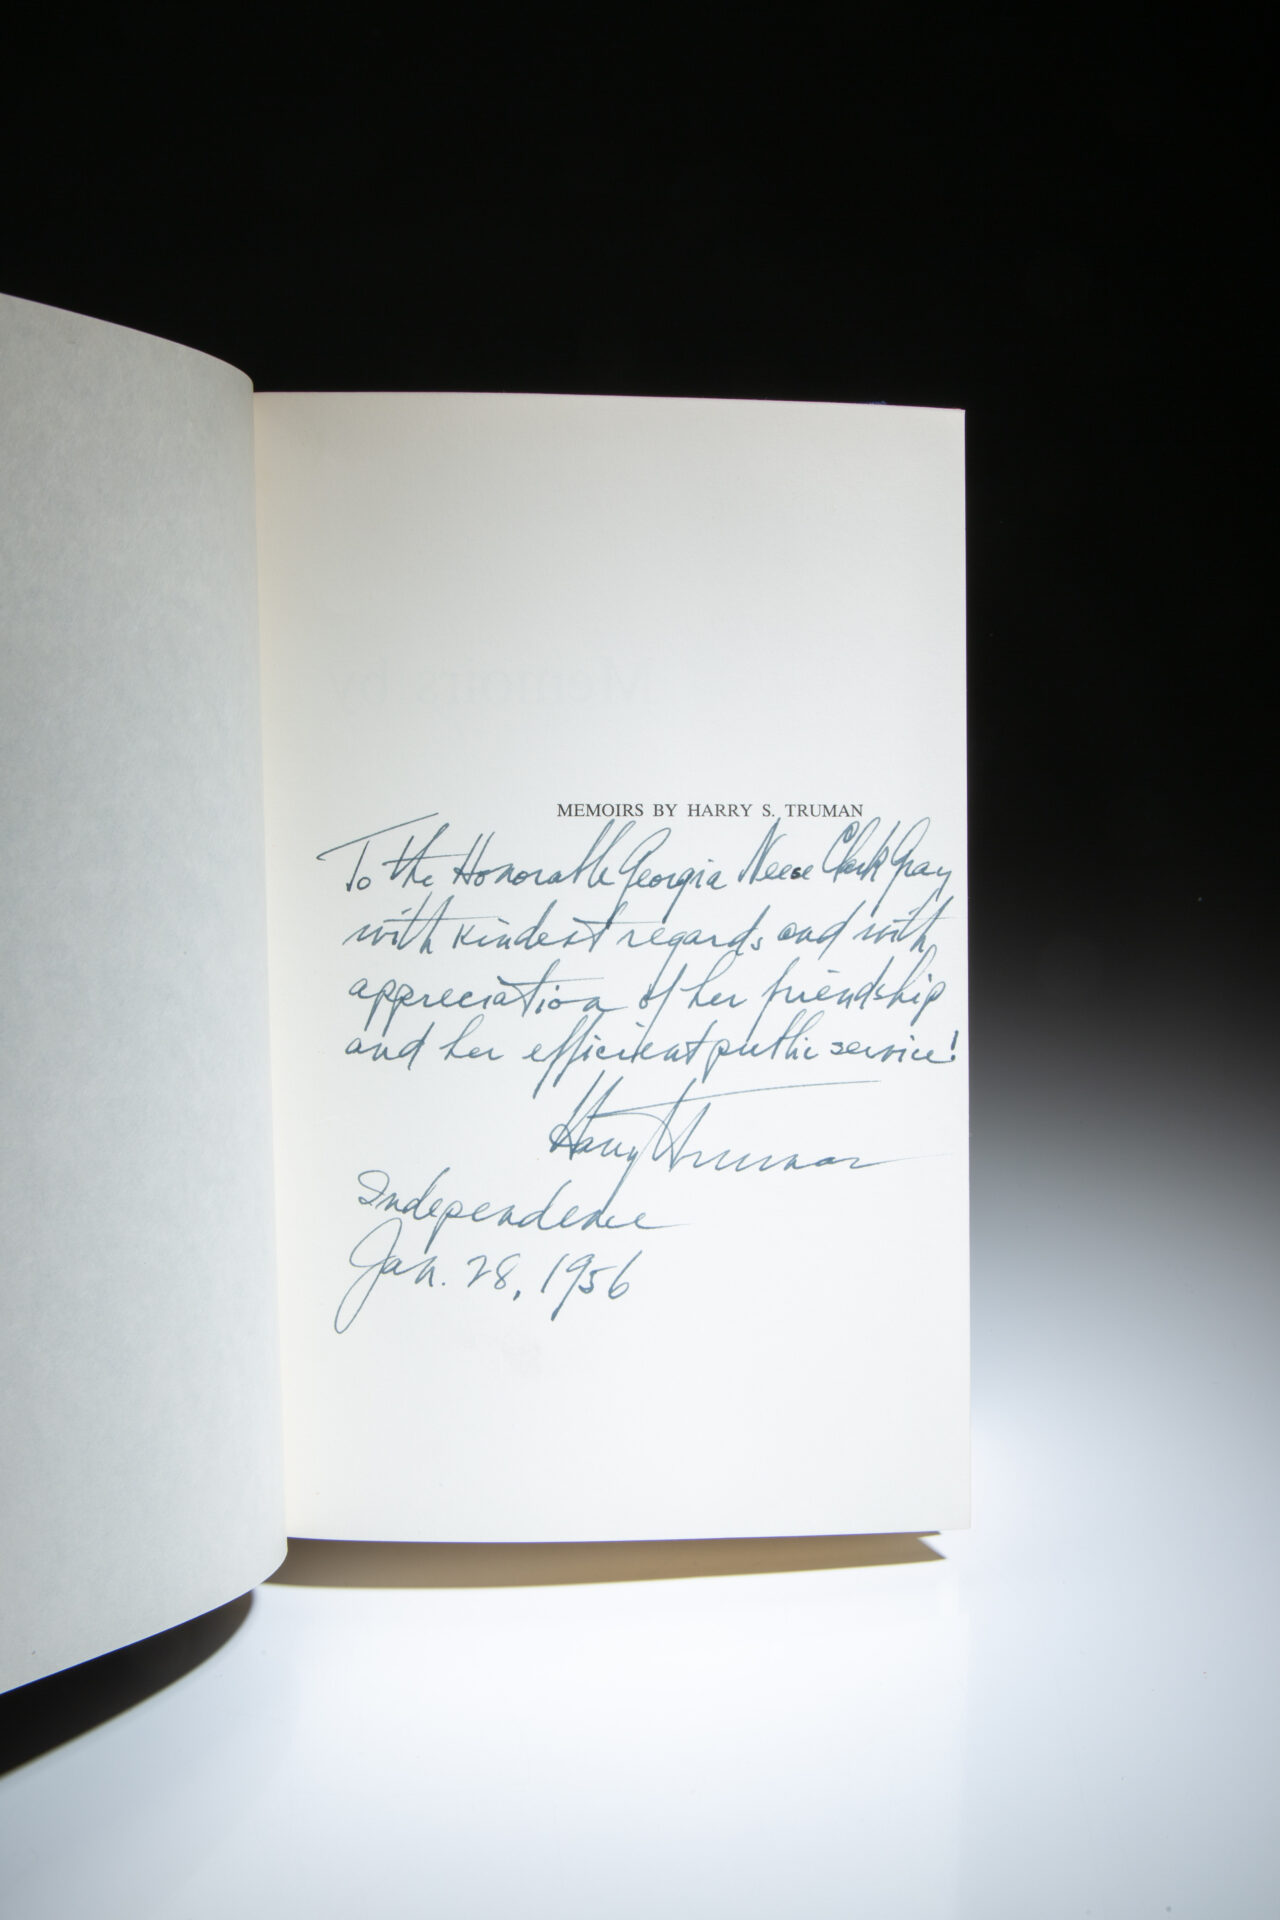 MEMOIRS BY HARRY S. TRUMAN
To the Honorable Georgia Neese Clark Gray
with kindest regards and with
appreciation of her friendship
and her efficient public service!
Harry Truman
Independence
Jan. 28, 1956